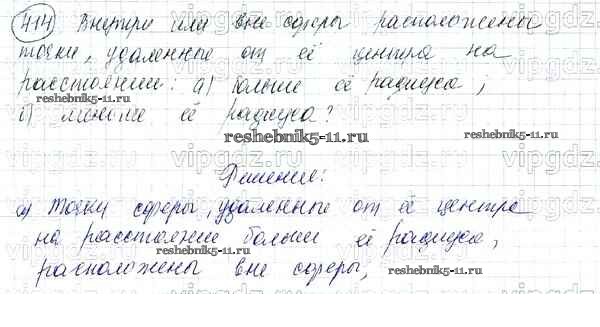 414 Внутри или вне сферы расположены
точки, удаленные от её центра на
расстоянии: а) больше её радиуса;
б) меньше её радиуса?
Решение:
а) Точки сферы, удаленные от её центра
на расстояние больше её радиуса,
расположены вне сферы,
reshebnik5-11.ru
reshebnik5-11.ru
reshebnik5-11.ru
reshebnik5-11.ru
vipgdz.ru